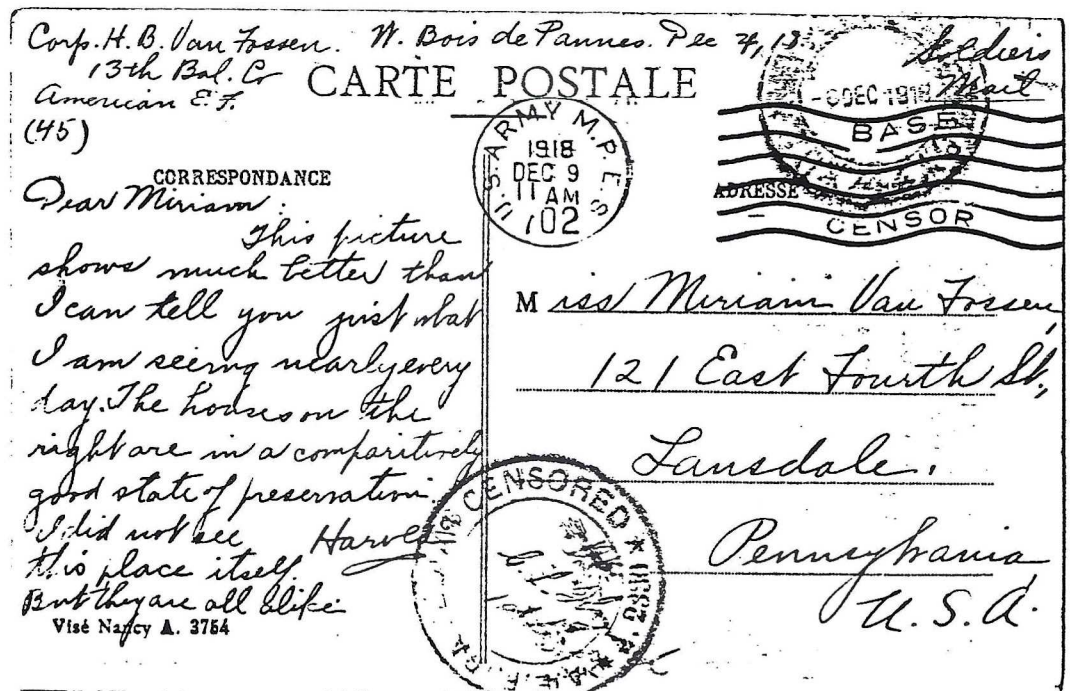 Corp. H. B. Van Fossen. W. Bois de Pannes. Dec 4, 18.
13th Bal. Co
American E. F.
(45)
Soldiers
Mail
CARTE POSTALE
U.S. ARMY M.P.E.S.
1918
DEC 9
11 AM
702
DEC 1918
BASE
CENSOR
CORRESPONDANCE
ADRESSE
Dear Miriam:
This picture
shows much better than
I can tell you just what
I am seeing nearly every
day. The houses on the
right are in a comparitively
good state of preservation.
I did not see
this place itself.
But they are all alike
Harold
Visé Nancy A. 3754
Miss Miriam Van Fossen,
121 East Fourth St.,
Lansdale.
Pennsylvania
U. S. A.
CENSORED
A.E.F.